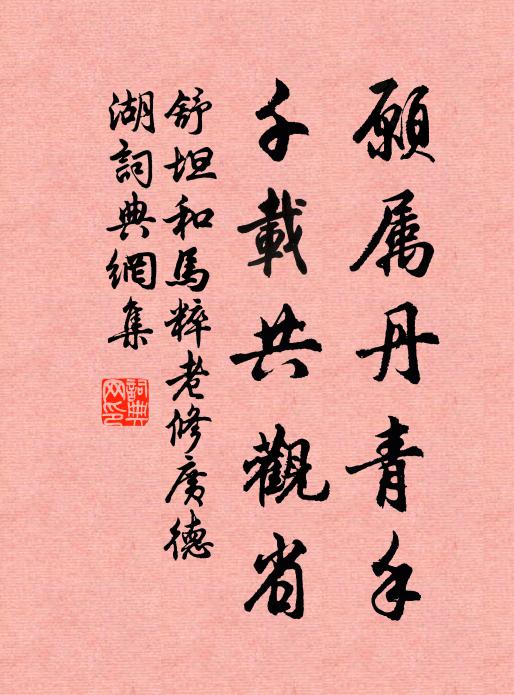 願属丹青手
千載共觀省
舒坦和馬粹老修廣德
湖詞典網集
詞典
网印